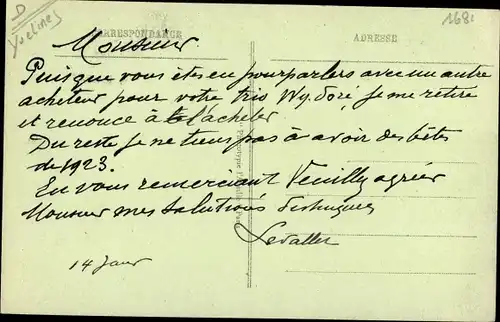 D
Yvelines
1681
CORRESPONDANCE
ADRESSE
Monsieur
Puisque vous êtes en pourparlers avec un autre
acheteur pour votre trio Wy. doré, je me retire
et renonce à l'acheter
Du reste je ne tiens pas à avoir des bêtes
de 1923.
En vous remerciant Veuillez agréer
Monsieur mes salutations distinguées
Levallet
14 Janv